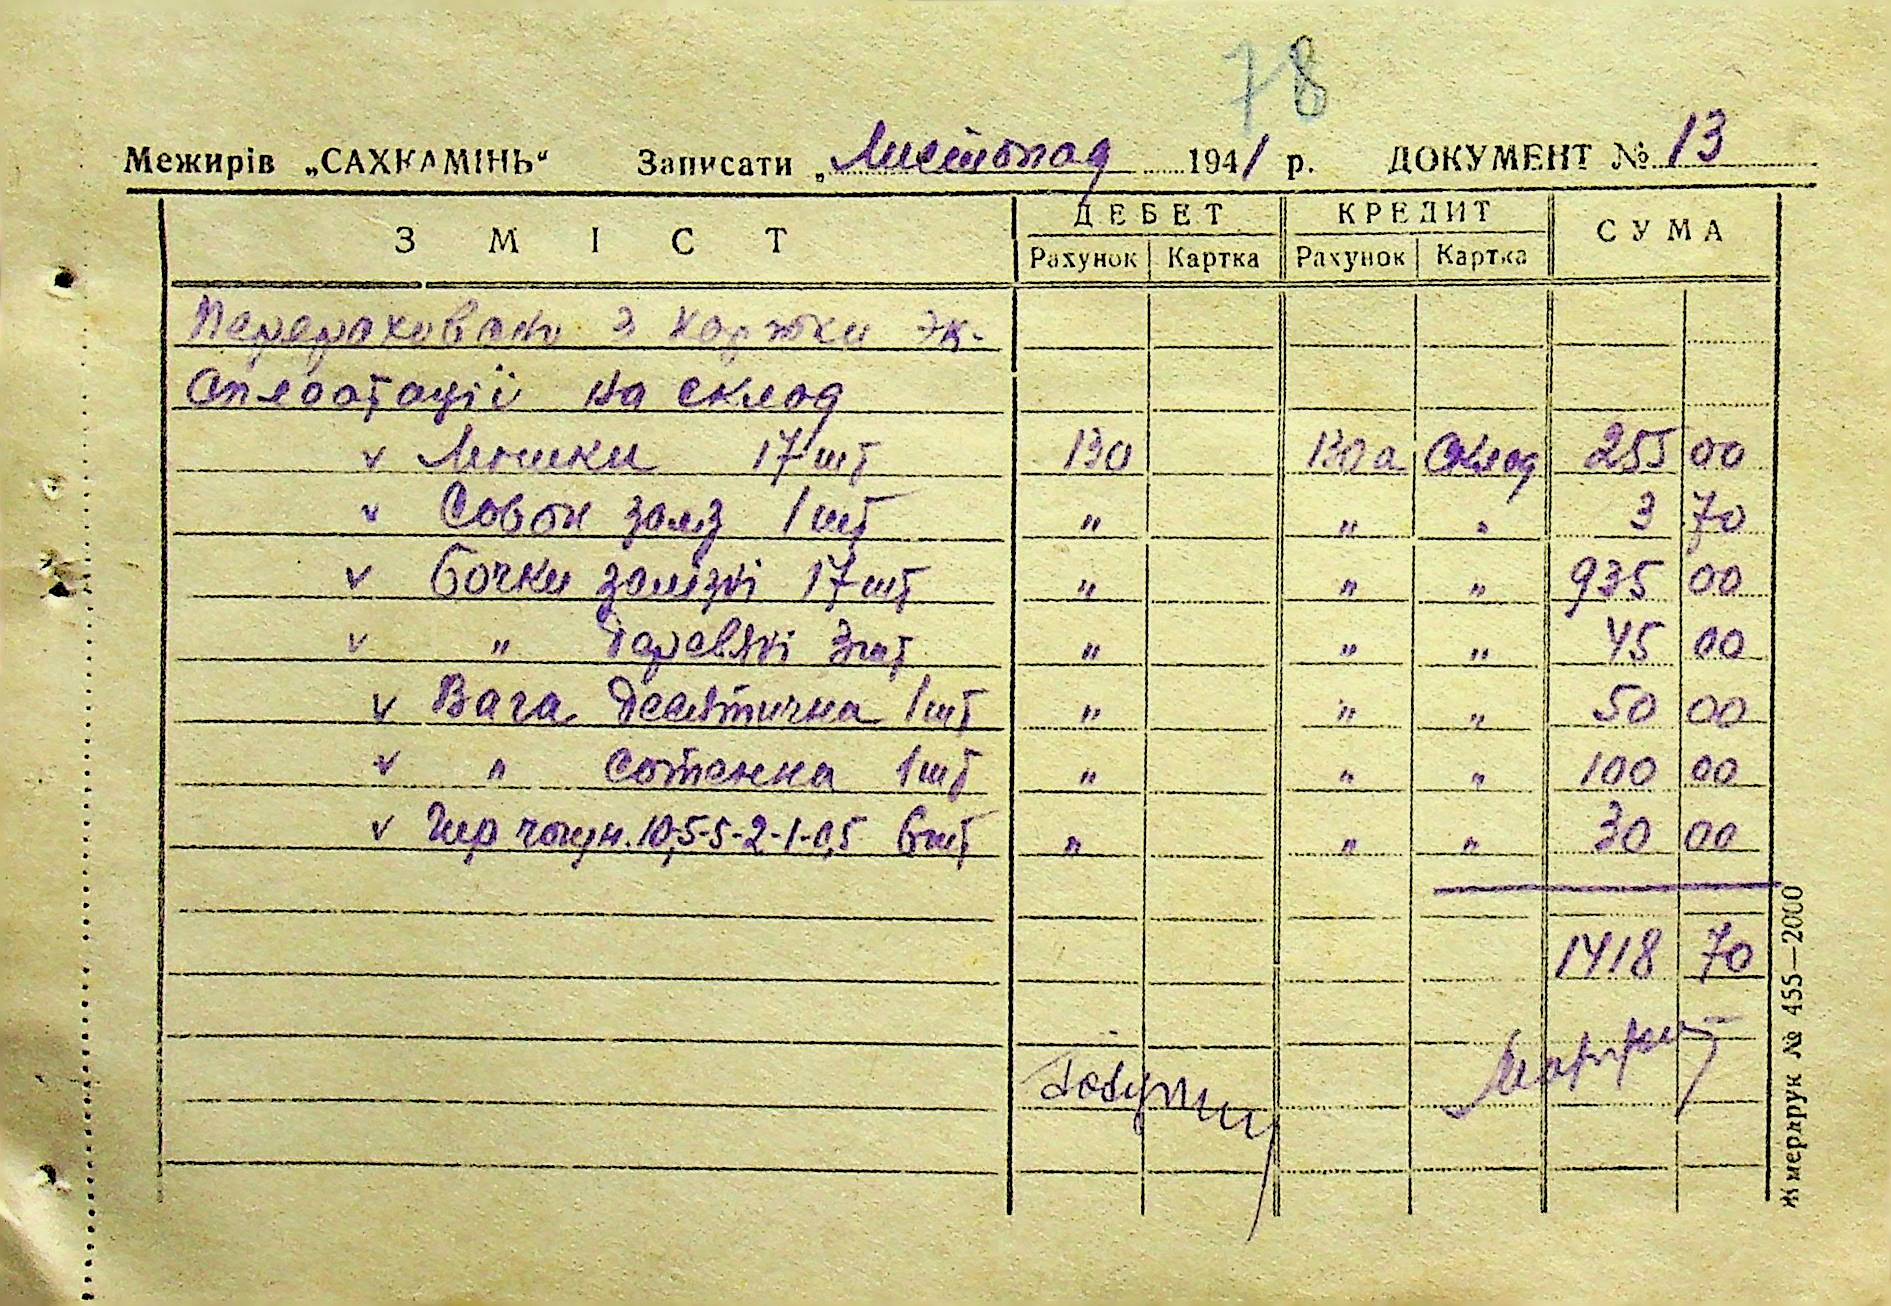 78
Межирів „САХКАМІНЬ“ Записати „Листопад 1941 р. ДОКУМЕНТ № 13
ЗМІСТ ДЕБЕТ КРЕДИТ СУМА
Рахунок Картка Рахунок Картка
Перераховано з картки эк-
сплоатації на склад
v Мешки 17 шт 130 130а Склад 255 00
v Совок заліз 1 шт " " " 3 70
v Бочки залізні 17 шт " " " 935 00
v " деревяні 3 шт " " " 45 00
v Вага десятична 1 шт " " " 50 00
v " сотенна 1 шт " " " 100 00
v Гир чогун. 10,5-5-2-1-0,5 6 шт " " " 30 00
1418 70
Жмердрук № 455—2000